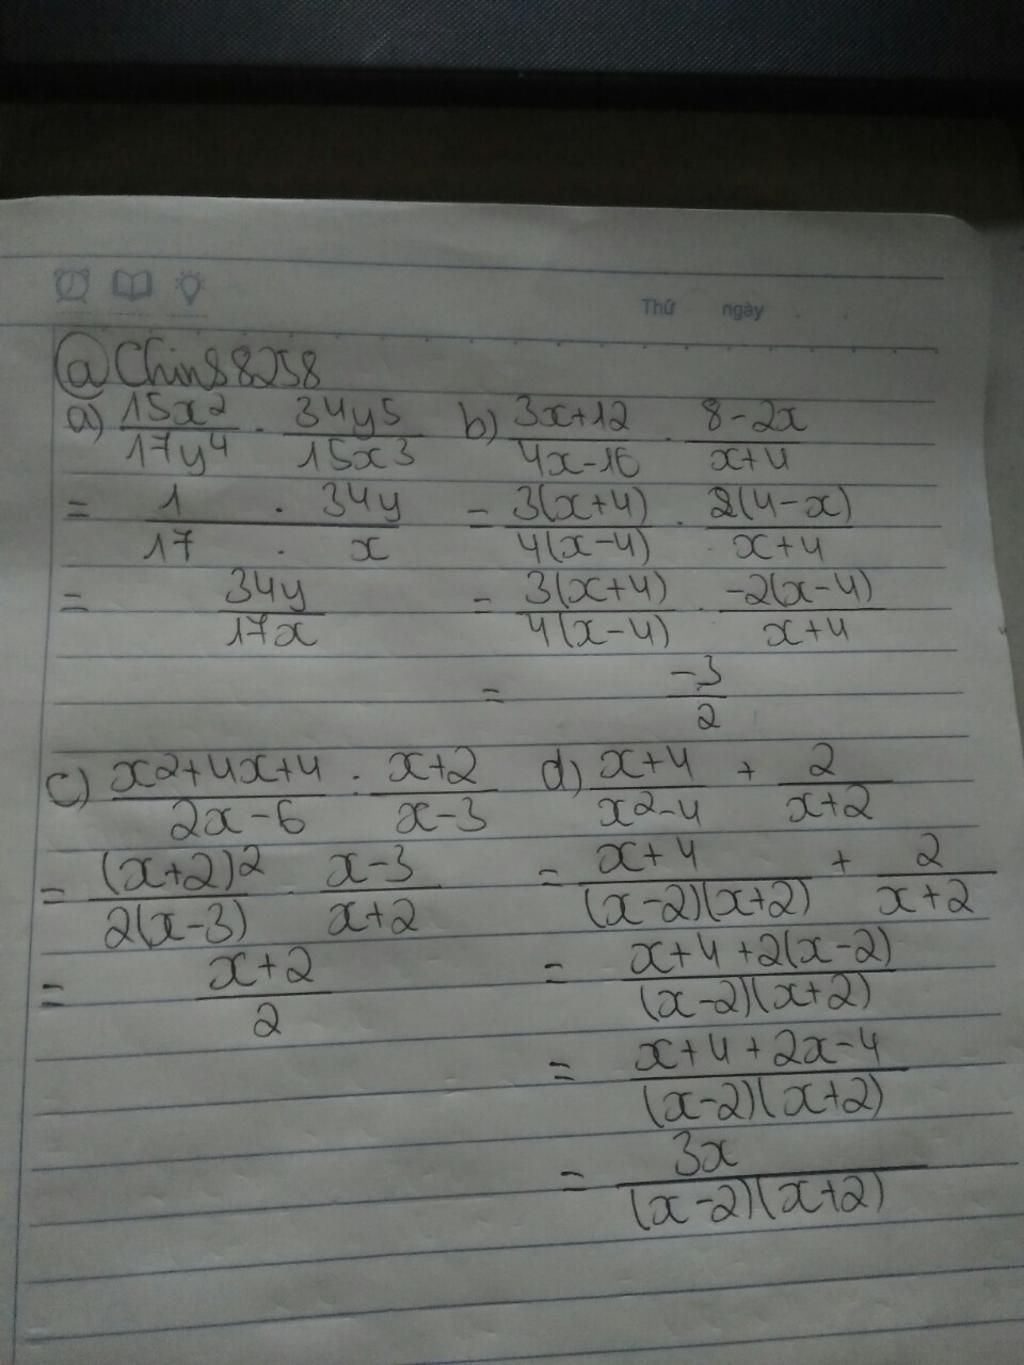 Thứ ngày
@Chin88258
a) 15x2/17y4 . 34y5/15x3
= 1 . 34y / 17 . x
= 34y/17x
b) 3x+12/4x-16 . 8-2x/x+4
= 3(x+4)/4(x-4) . 2(4-x)/x+4
= 3(x+4)/4(x-4) . -2(x-4)/x+4
= -3/2
c) x2+4x+4/2x-6 : x+2/x-3
= (x+2)2/2(x-3) . x-3/x+2
= x+2/2
d) x+4/x2-4 + 2/x+2
= x+4/(x-2)(x+2) + 2/x+2
= x+4+2(x-2)/(x-2)(x+2)
= x+4+2x-4/(x-2)(x+2)
= 3x/(x-2)(x+2)